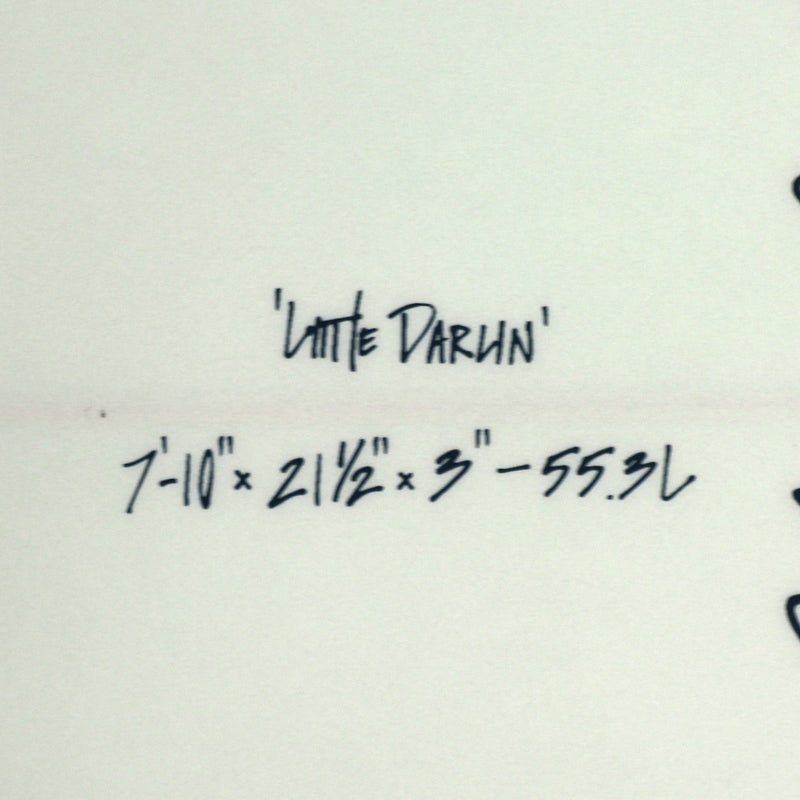 'Little Darlin'
7'-10" x 21 1/2" x 3" - 55.3L